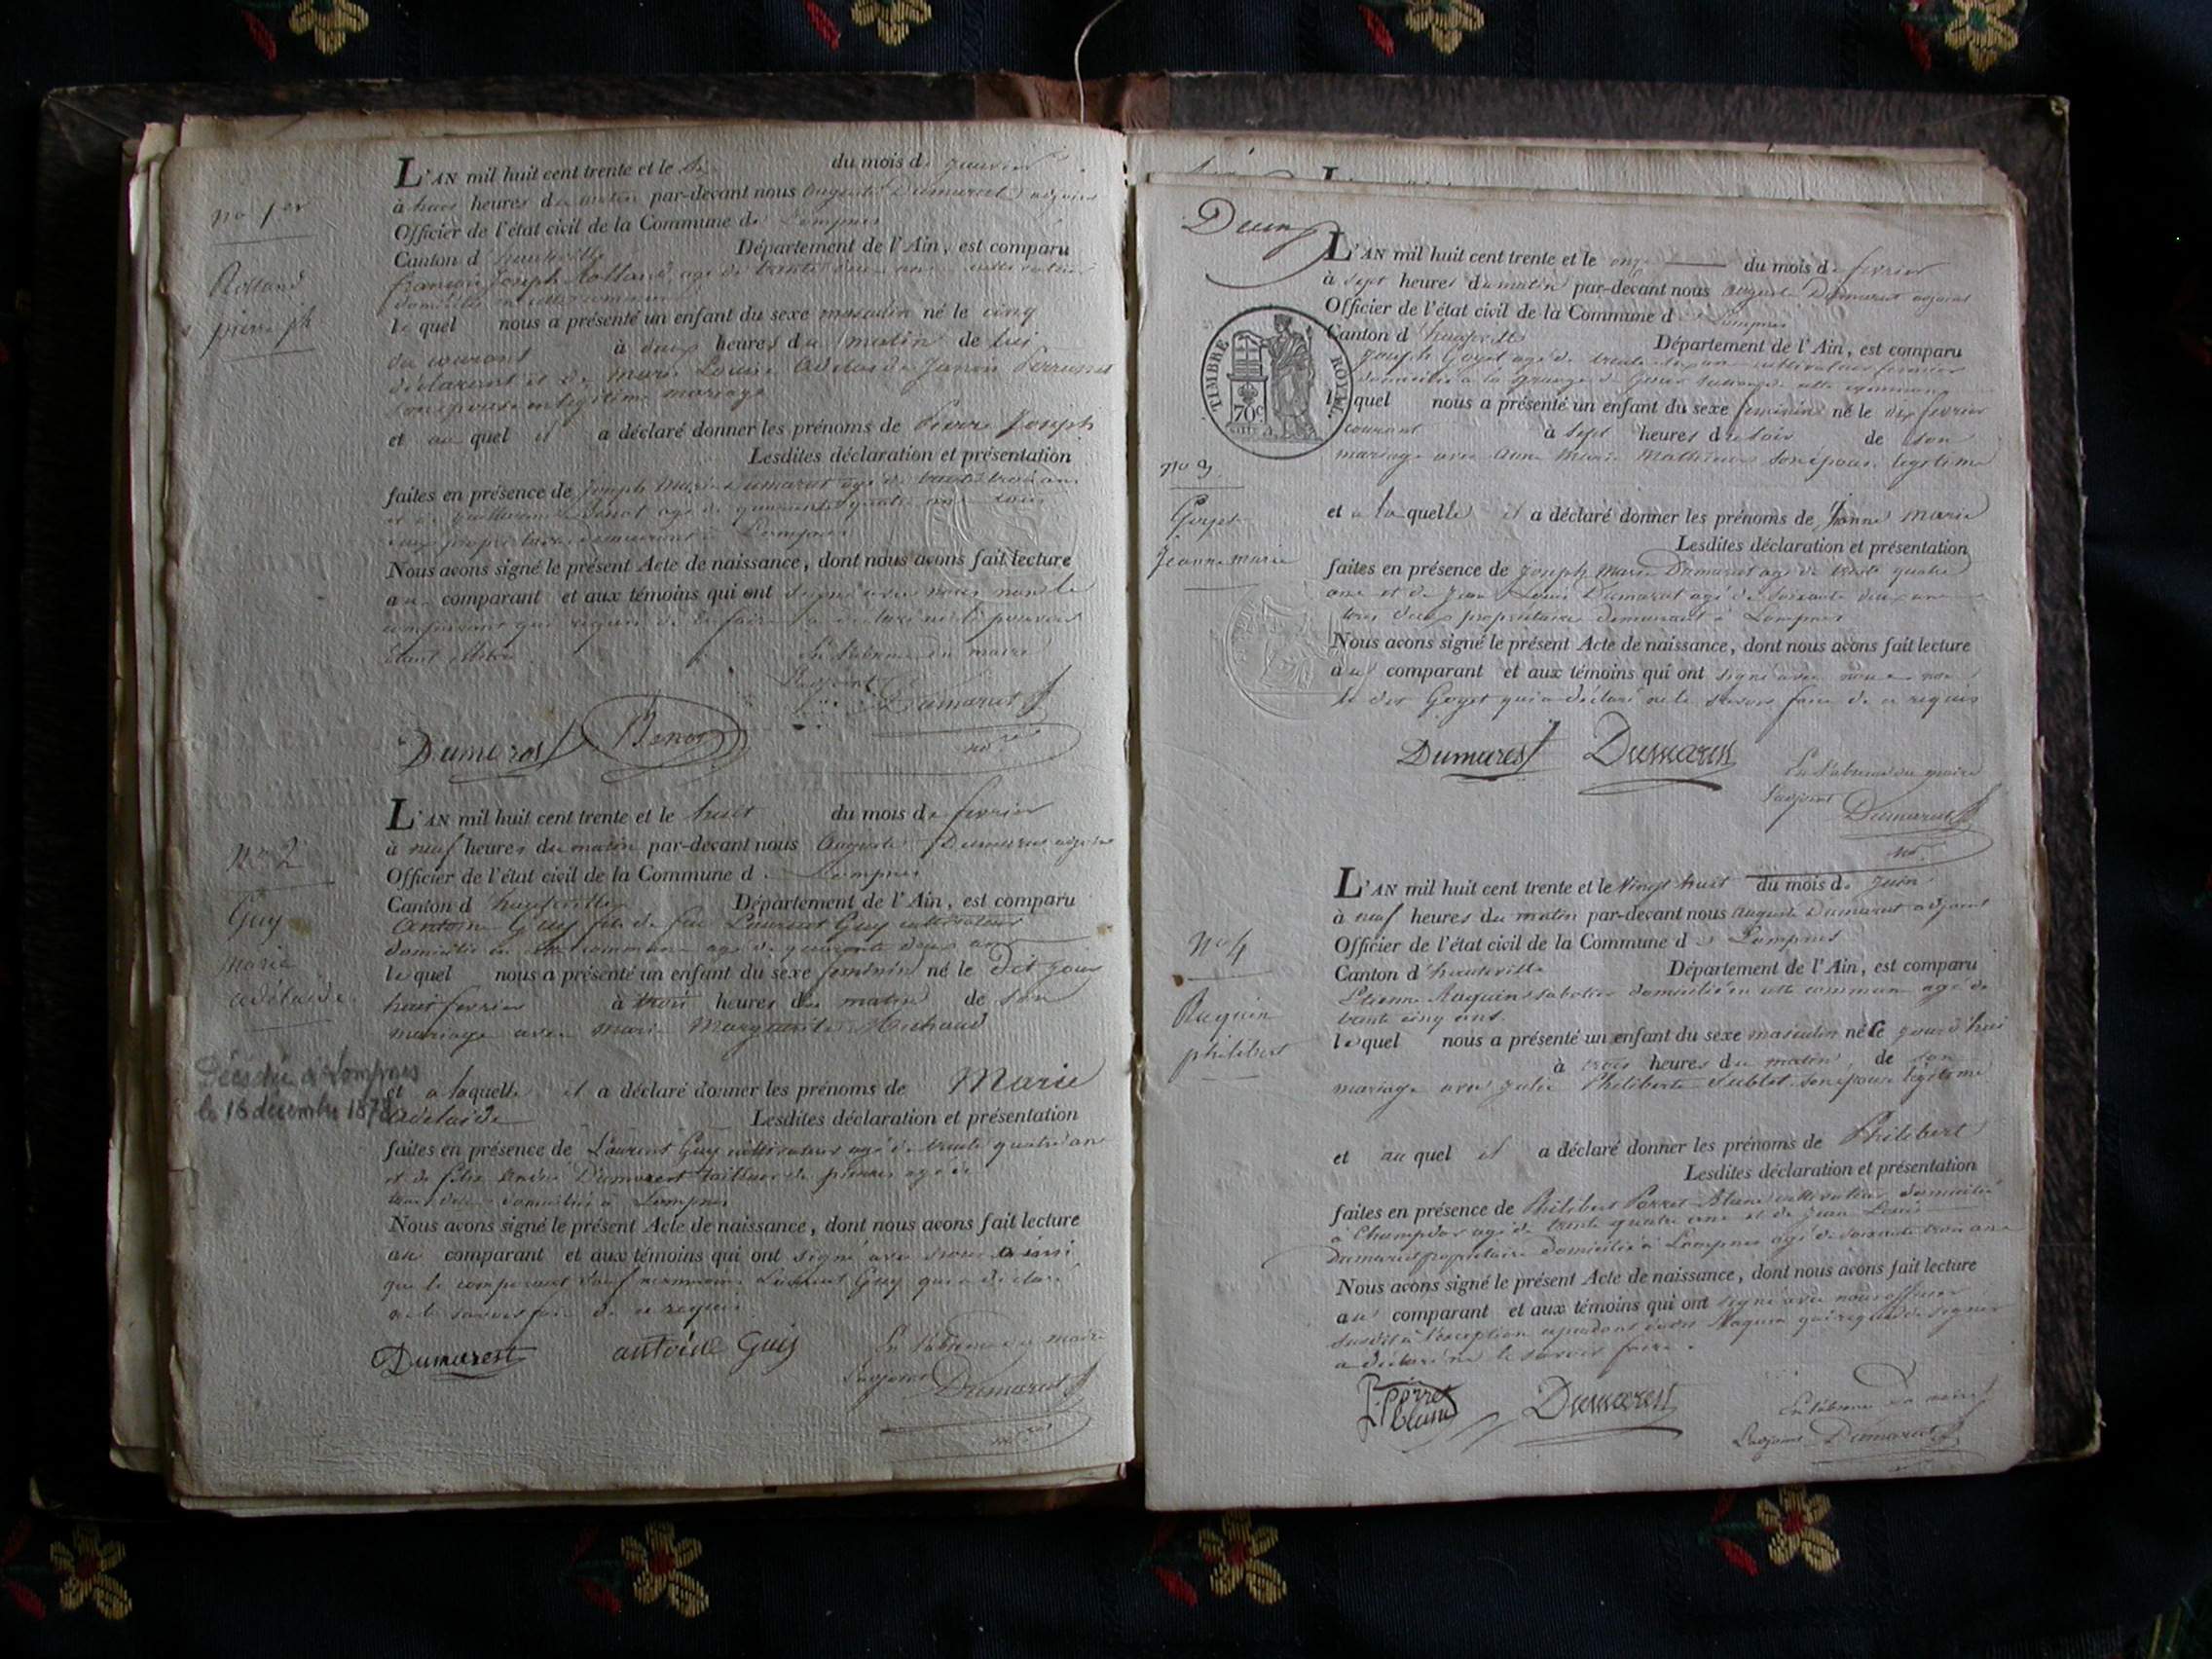 no 1er
Rolland
pierre jh
L'AN mil huit cent trente et le six du mois de janvier
à heures du matin par-devant nous auguste Dumarest adjoint
Officier de l'état civil de la Commune de Lompnes
Canton d hauteville Département de l'Ain, est comparu
françois joseph Rolland agé de trente ans cultivateur
domicilié en cette commune
lequel nous a présenté un enfant du sexe masculin né le cinq
du courant à deux heures du matin de lui
déclarant et de marie Louise adelaide
son épouse en légitime mariage
et au quel il a déclaré donner les prénoms de Pierre Joseph
Lesdites déclaration et présentation
faites en présence de joseph Marie Dumarest agé de trente trois ans
et de Benot agé de quarante quatre ans tous
deux propriétaires demeurant à Lompnes
Nous avons signé le présent Acte de naissance, dont nous avons fait lecture
au comparant et aux témoins qui ont signé avec nous non le
comparant qui requis de le faire a déclaré ne le pouvoir
étant illétré En l'absence du maire
L'adjoint
Dumarest
Dumarest Benot
No 2
Guy
marie
adélaide
Décédée à Lompnes
le 16 décembre 187
L'AN mil huit cent trente et le huit du mois de fevrier
à neuf heures du matin par-devant nous Auguste Dumarest adjoint
Officier de l'état civil de la Commune d Lompnes
Canton d hauteville Département de l'Ain, est comparu
Antoine Guy fils de feu Laurent Guy cultivateur
domicilié en cette commune agé de quarante deux ans
lequel nous a présenté un enfant du sexe feminin né le dit jour
huit fevrier à trois heures du matin de son
mariage avec marie Marguerite Michaud
et a laquelle il a déclaré donner les prénoms de Marie
adelaide Lesdites déclaration et présentation
faites en présence de Laurent Guy cultivateur agé de trente quatre ans
et de felix andré Dumarest tailleur de pierres agé de
tous deux domiciliés à Lompnes
Nous avons signé le présent Acte de naissance, dont nous avons fait lecture
au comparant et aux témoins qui ont signé avec nous ainsi
que le comparant sauf Laurent Guy qui a déclaré
ne le savoir faire de ce requis
Dumarest antoine Guy En l'absence du maire
L'adjoint Dumarest
L'AN mil huit cent trente et le onze du mois de fevrier
à sept heures du matin par-devant nous auguste Dumarest adjoint
Officier de l'état civil de la Commune d Lompnes
Canton d hauteville Département de l'Ain, est comparu
joseph Goyet agé de trente ans cultivateur fermier
domicilié à la grange de cette commune
lequel nous a présenté un enfant du sexe feminin né le dix fevrier
courant à sept heures du soir de son
mariage avec anne marie Mathieu son épouse légitime
TIMBRE ROYAL
70c
No 3
Goyet
jeanne marie
et a laquelle il a déclaré donner les prénoms de jeanne marie
Lesdites déclaration et présentation
faites en présence de joseph marie Dumarest agé de trente quatre
ans et de jean Louis Dumarest agé de soixante deux ans
tous deux propriétaires demeurant à Lompnes
Nous avons signé le présent Acte de naissance, dont nous avons fait lecture
au comparant et aux témoins qui ont signé avec nous non
le dit Goyet qui a déclaré ne le savoir faire de ce requis
Dumarest Dumarest En l'absence du maire
l'adjoint Dumarest
No 4
Raquin
philibert
L'AN mil huit cent trente et le vingt huit du mois de juin
à neuf heures du matin par-devant nous auguste Dumarest adjoint
Officier de l'état civil de la Commune de Lompnes
Canton d'hauteville Département de l'Ain, est comparu
Etienne Raquin sabotier domicilié en cette commune agé de
trente cinq ans.
lequel nous a présenté un enfant du sexe masculin né ce jourd'hui
à trois heures du matin, de son
mariage avec julie Philiberte Sublet son épouse légitime
et au quel il a déclaré donner les prénoms de Philibert
Lesdites déclaration et présentation
faites en présence de Philibert Perret-Blanc cultivateur domicilié
à Champdor agé de trente quatre ans et de jean Louis
Dumarest propriétaire domicilié à Lompnes agé de soixante trois ans
Nous avons signé le présent Acte de naissance, dont nous avons fait lecture
au comparant et aux témoins qui ont signé avec nous officier
susdit à l'exception cependant dudit Raquin qui requis de signer
a déclaré ne le savoir faire.
P. perret
blanc Dumarest En l'absence du maire
L'adjoint Dumarest